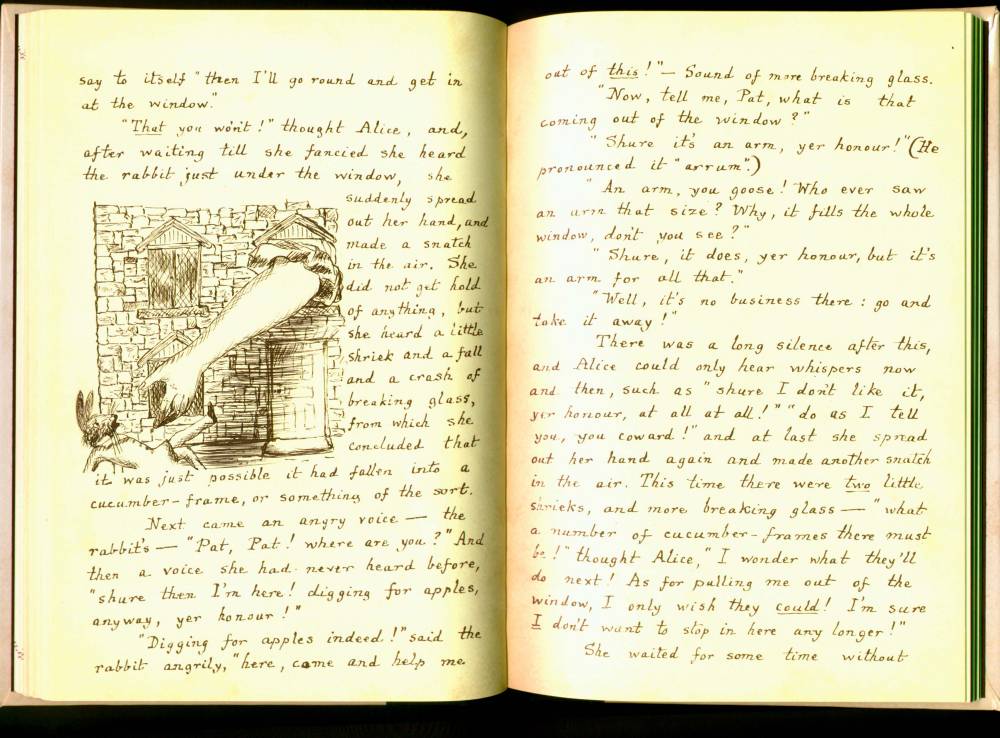 say to itself "then I'll go round and get in
at the window."
"That you wont!" thought Alice, and,
after waiting till she fancied she heard
the rabbit just under the window, she
suddenly spread
out her hand, and
made a snatch
in the air. She
did not get hold
of anything, but
she heard a little
shriek and a fall
and a crash of
breaking glass,
from which she
concluded that
it was just possible it had fallen into a
cucumber-frame, or something of the sort.
Next came an angry voice — the
rabbit's — "Pat, Pat! where are you?" And
then a voice she had never heard before,
"shure then I'm here! digging for apples,
anyway, yer honour!"
"Digging for apples indeed!" said the
rabbit angrily, "here, come and help me
out of this!" — Sound of more breaking glass.
"Now, tell me, Pat, what is that
coming out of the window?"
"Shure it's an arm, yer honour!" (He
pronounced it "arrum".)
"An arm, you goose! Who ever saw
an arm that size? Why, it fills the whole
window, don't you see?"
"Shure, it does, yer honour, but it's
an arm for all that."
"Well, it's no business there: go and
take it away!"
There was a long silence after this,
and Alice could only hear whispers now
and then, such as "shure I don't like it,
yer honour, at all at all!" "do as I tell
you, you coward!" and at last she spread
out her hand again and made another snatch
in the air. This time there were two little
shrieks, and more breaking glass — "what
a number of cucumber-frames there must
be!" thought Alice, "I wonder what they'll
do next! As for pulling me out of the
window, I only wish they could! I'm sure
I don't want to stop in here any longer!"
She waited for some time without